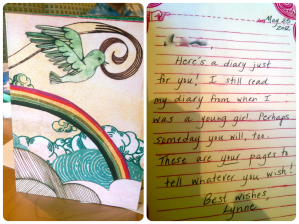 May 25
2012
Here's a diary just
for you! I still read
my diary from when I
was a young girl. Perhaps
someday you will, too.
These are your pages to
tell whatever you wish!
Best wishes,
Lynne